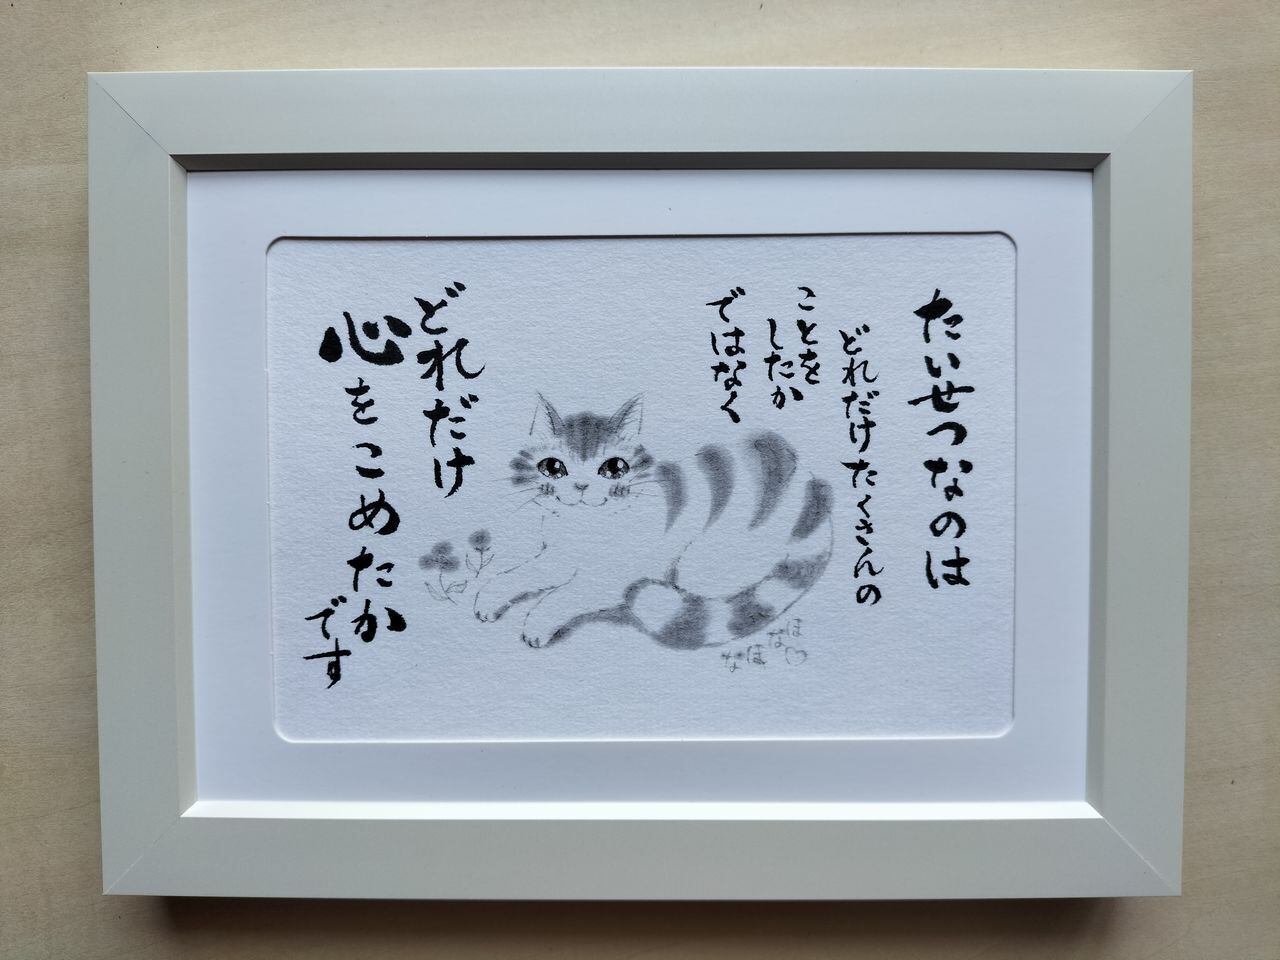 たいせつなのは
どれだけたくさんの
ことを
したか
ではなく
どれだけ
心をこめたか
です
ほ
な
ほ
な